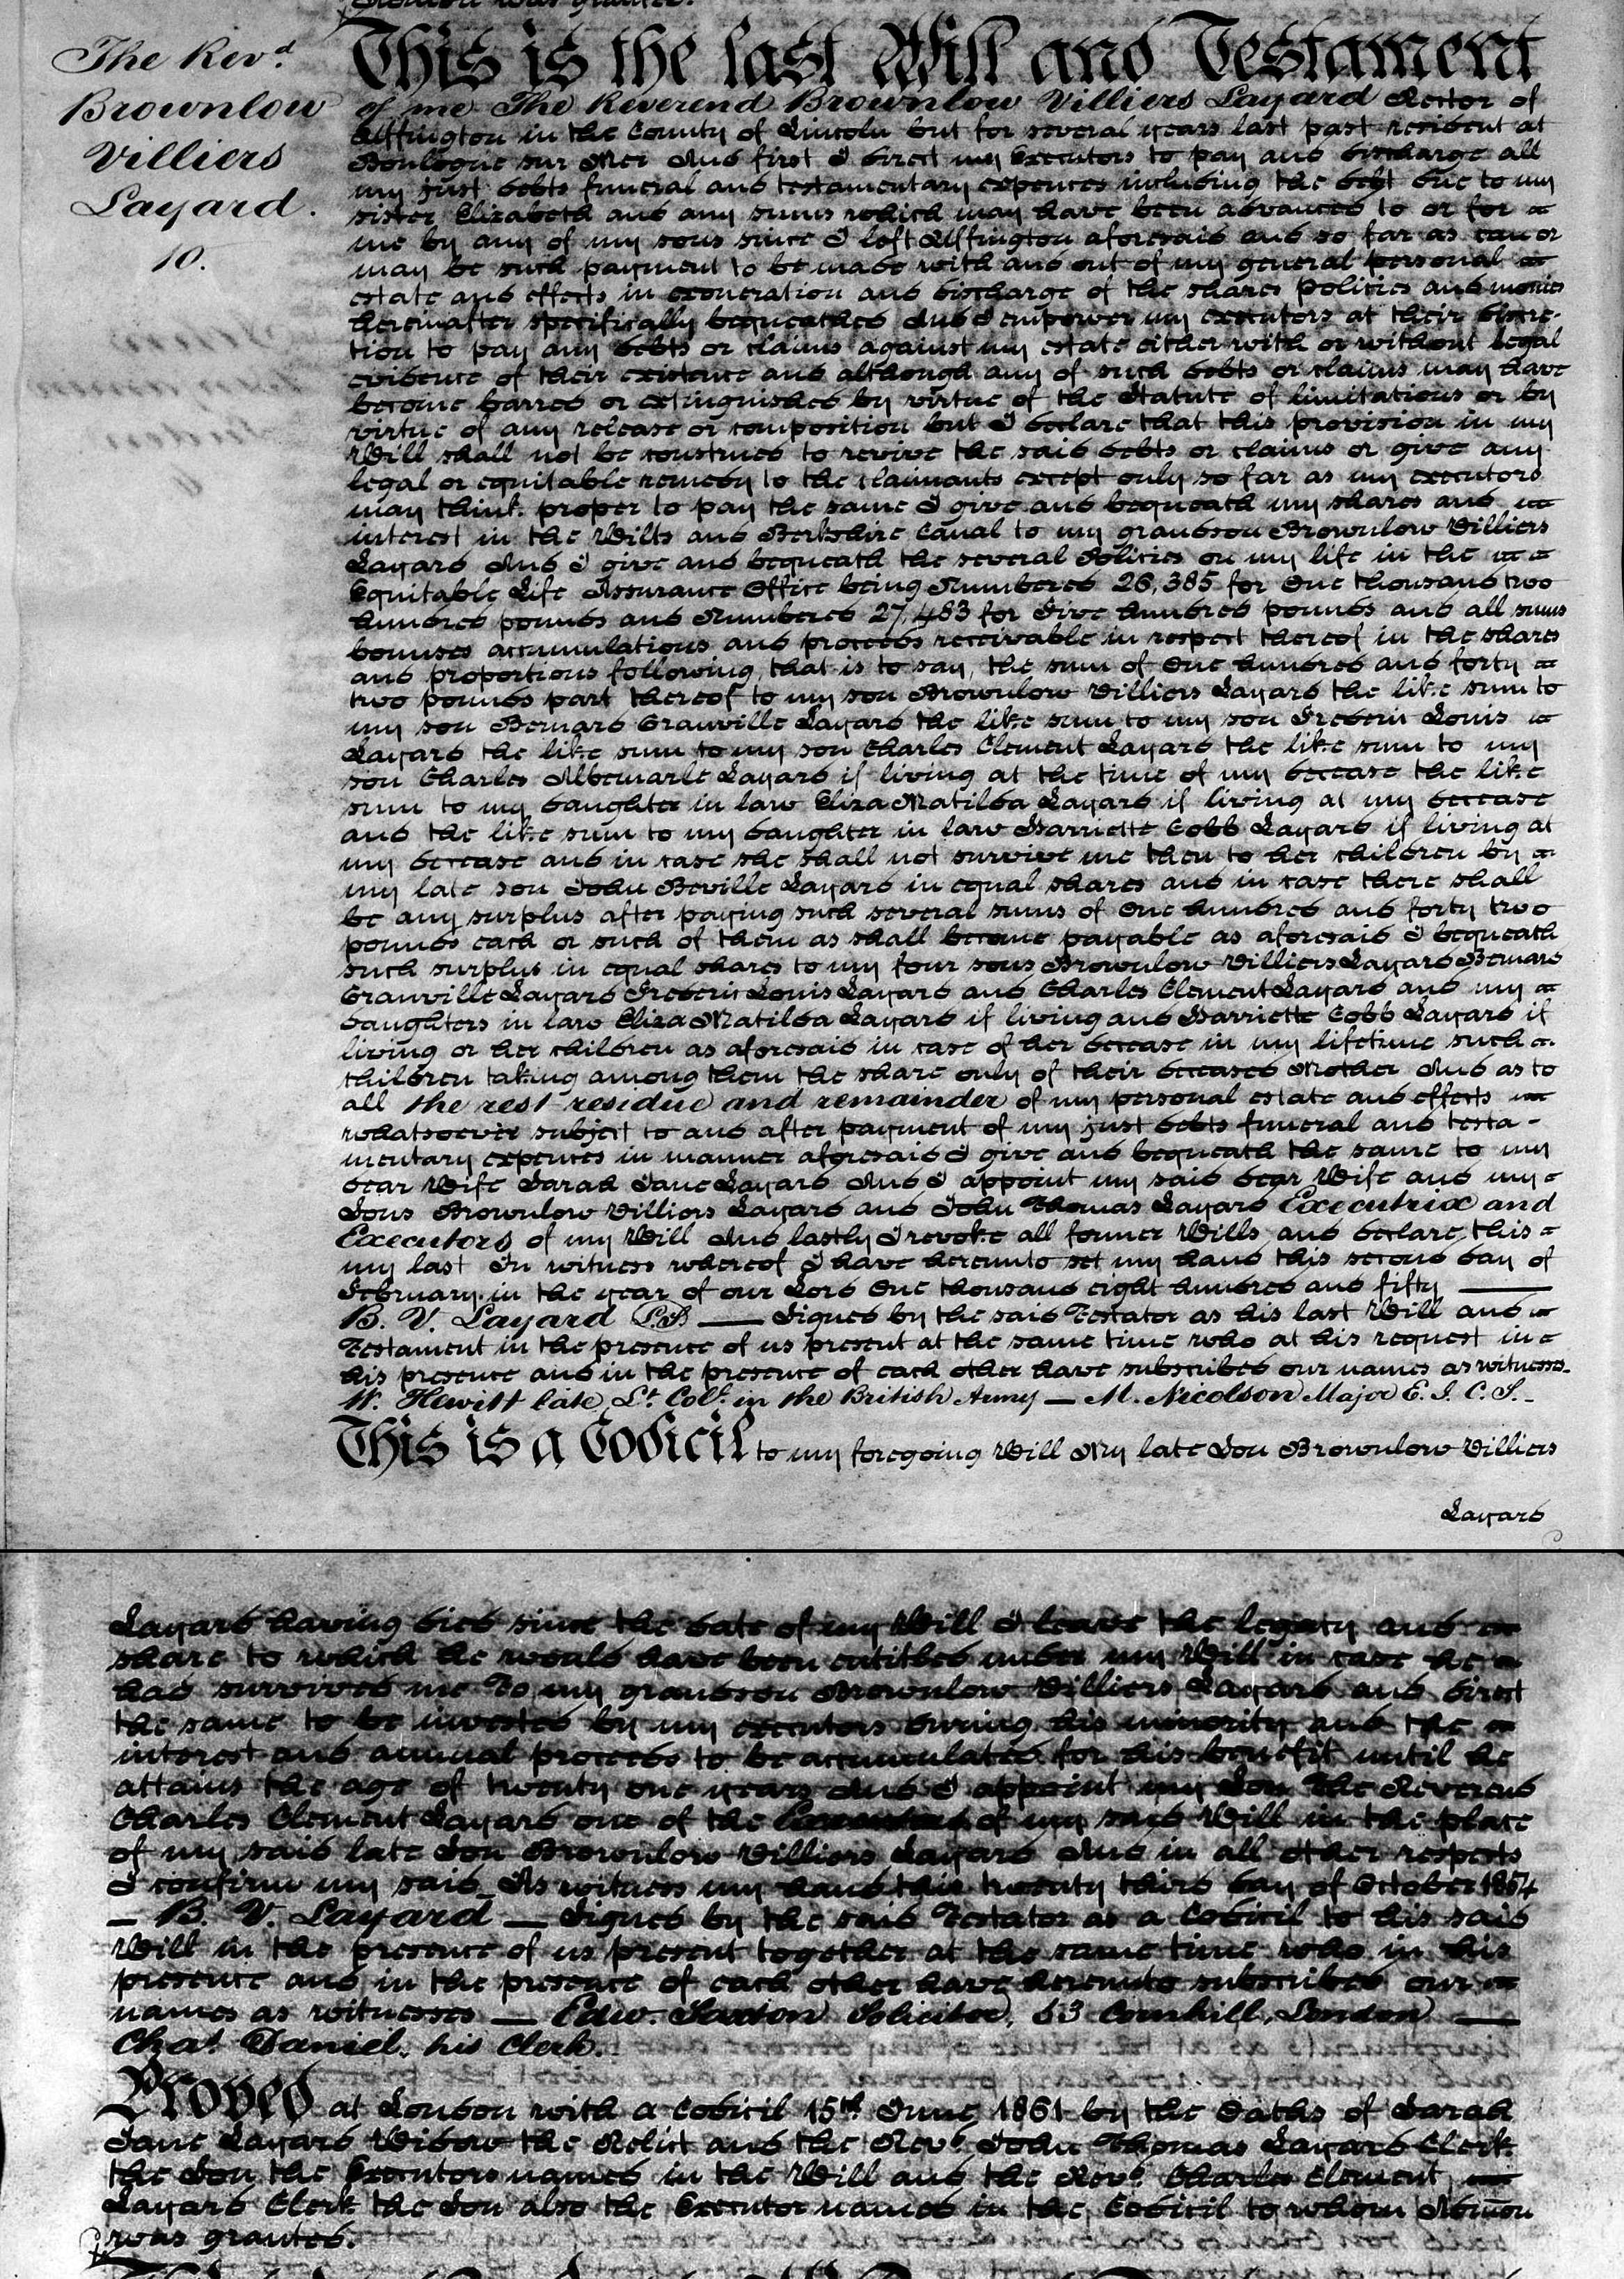 The Revd.
Brownlow
Villiers
Layard.
10.
This is the last Will and Testament
of me The Reverend Brownlow Villiers Layard Rector of
Uffington in the County of Lincoln but for several years last past resident at
Boulogne sur Mer And first I direct my Executors to pay and discharge all
my just debts funeral and testamentary expences including the debt due to my
sister Elizabeth and any sums which may have been advanced to or for
me by any of my sons since I left Uffington aforesaid and so far as can or
may be such payment to be made with and out of my general personal
estate and effects in exoneration and discharge of the shares policies and monies
hereinafter specifically bequeathed And I empower my executors at their discre-
tion to pay any debts or claims against my estate either with or without legal
evidence of their existence and although any of such debts or claims may have
become barred or extinguished by virtue of the Statute of limitations or by
virtue of any release or composition but I declare that this provision in my
Will shall not be construed to revive the said debts or claims or give any
legal or equitable remedy to the claimants except only so far as my executors
may think proper to pay the same I give and bequeath my shares and
interest in the Wilts and Berkshire Canal to my grandson Brownlow Villiers
Layard And I give and bequeath the several Policies on my life in the
Equitable Life Assurance Office being Numbered 26,385 for One thousand two
hundred pounds and Numbered 27,483 for Five hundred pounds and all sums
bonuses accumulations and proceeds receivable in respect thereof in the shares
and proportions following, that is to say, the sum of One hundred and forty
two pounds part thereof to my son Brownlow Villiers Layard the like sum to
my son Bernard Granville Layard the like sum to my son Frederic Louis
Layard the like sum to my son Charles Clement Layard the like sum to my
son Charles Albemarle Layard if living at the time of my decease the like
sum to my daughter in law Eliza Matilda Layard if living at my decease
and the like sum to my daughter in law Harriette Cobb Layard if living at
my decease and in case she shall not survive me then to her children by
my late son John Beville Layard in equal shares and in case there shall
be any surplus after paying such several sums of One hundred and forty two
pounds each or such of them as shall become payable as aforesaid I bequeath
such surplus in equal shares to my four sons Brownlow Villiers Layard Bernard
Granville Layard Frederic Louis Layard and Charles Clement Layard and my
daughters in law Eliza Matilda Layard if living and Harriette Cobb Layard if
living or her children as aforesaid in case of her decease in my lifetime such
children taking among them the share only of their deceased Mother And as to
all the rest residue and remainder of my personal estate and effects
whatsoever subject to and after payment of my just debts funeral and testa-
mentary expences in manner aforesaid I give and bequeath the same to my
dear Wife Sarah Jane Layard And I appoint my said dear Wife and my
Sons Brownlow Villiers Layard and John Thomas Layard Executrix and
Executors of my Will And lastly I revoke all former Wills and declare this
my last In witness whereof I have hereunto set my hand this second day of
February in the year of our Lord One thousand eight hundred and fifty ——
B. V. Layard (LS) —— Signed by the said Testator as his last Will and
Testament in the presence of us present at the same time who at his request in
his presence and in the presence of each other have subscribed our names as witnesses.
W. Hewitt late Lt. Col. in the British Army — M. Nicolson Major E. I. C. S.
This is a Codicil to my foregoing Will My late Son Brownlow Villiers
Layard
Layard having died since the date of my Will I leave the legacy and
share to which he would have been entitled under my Will in case he
had survived me To my grandson Brownlow Villiers Layard and direct
the same to be invested by my executors during his minority and the
interest and annual proceeds to be accumulated for his benefit until he
attains the age of twenty one years And I appoint my Son The Reverend
Charles Clement Layard one of the Executors of my said Will in the place
of my said late Son Brownlow Villiers Layard And in all other respects
I confirm my said As witness my hand this twenty third day of October 1854
— B. V. Layard — Signed by the said Testator as a Codicil to his said
Will in the presence of us present together at the same time who in his
presence and in the presence of each other have hereunto subscribed our
names as witnesses — Edw. Saxton Solicitor, 53 Cornhill, London ——
Chas. Daniel, his Clerk.
Proved at London with a Codicil 15th June 1861 by the Oaths of Sarah
Jane Layard Widow the Relict and the Revd. John Thomas Layard Clerk
the Son the Executors named in the Will and the Revd. Charles Clement
Layard Clerk the Son also the Executor named in the Codicil to whom Admon
was granted.